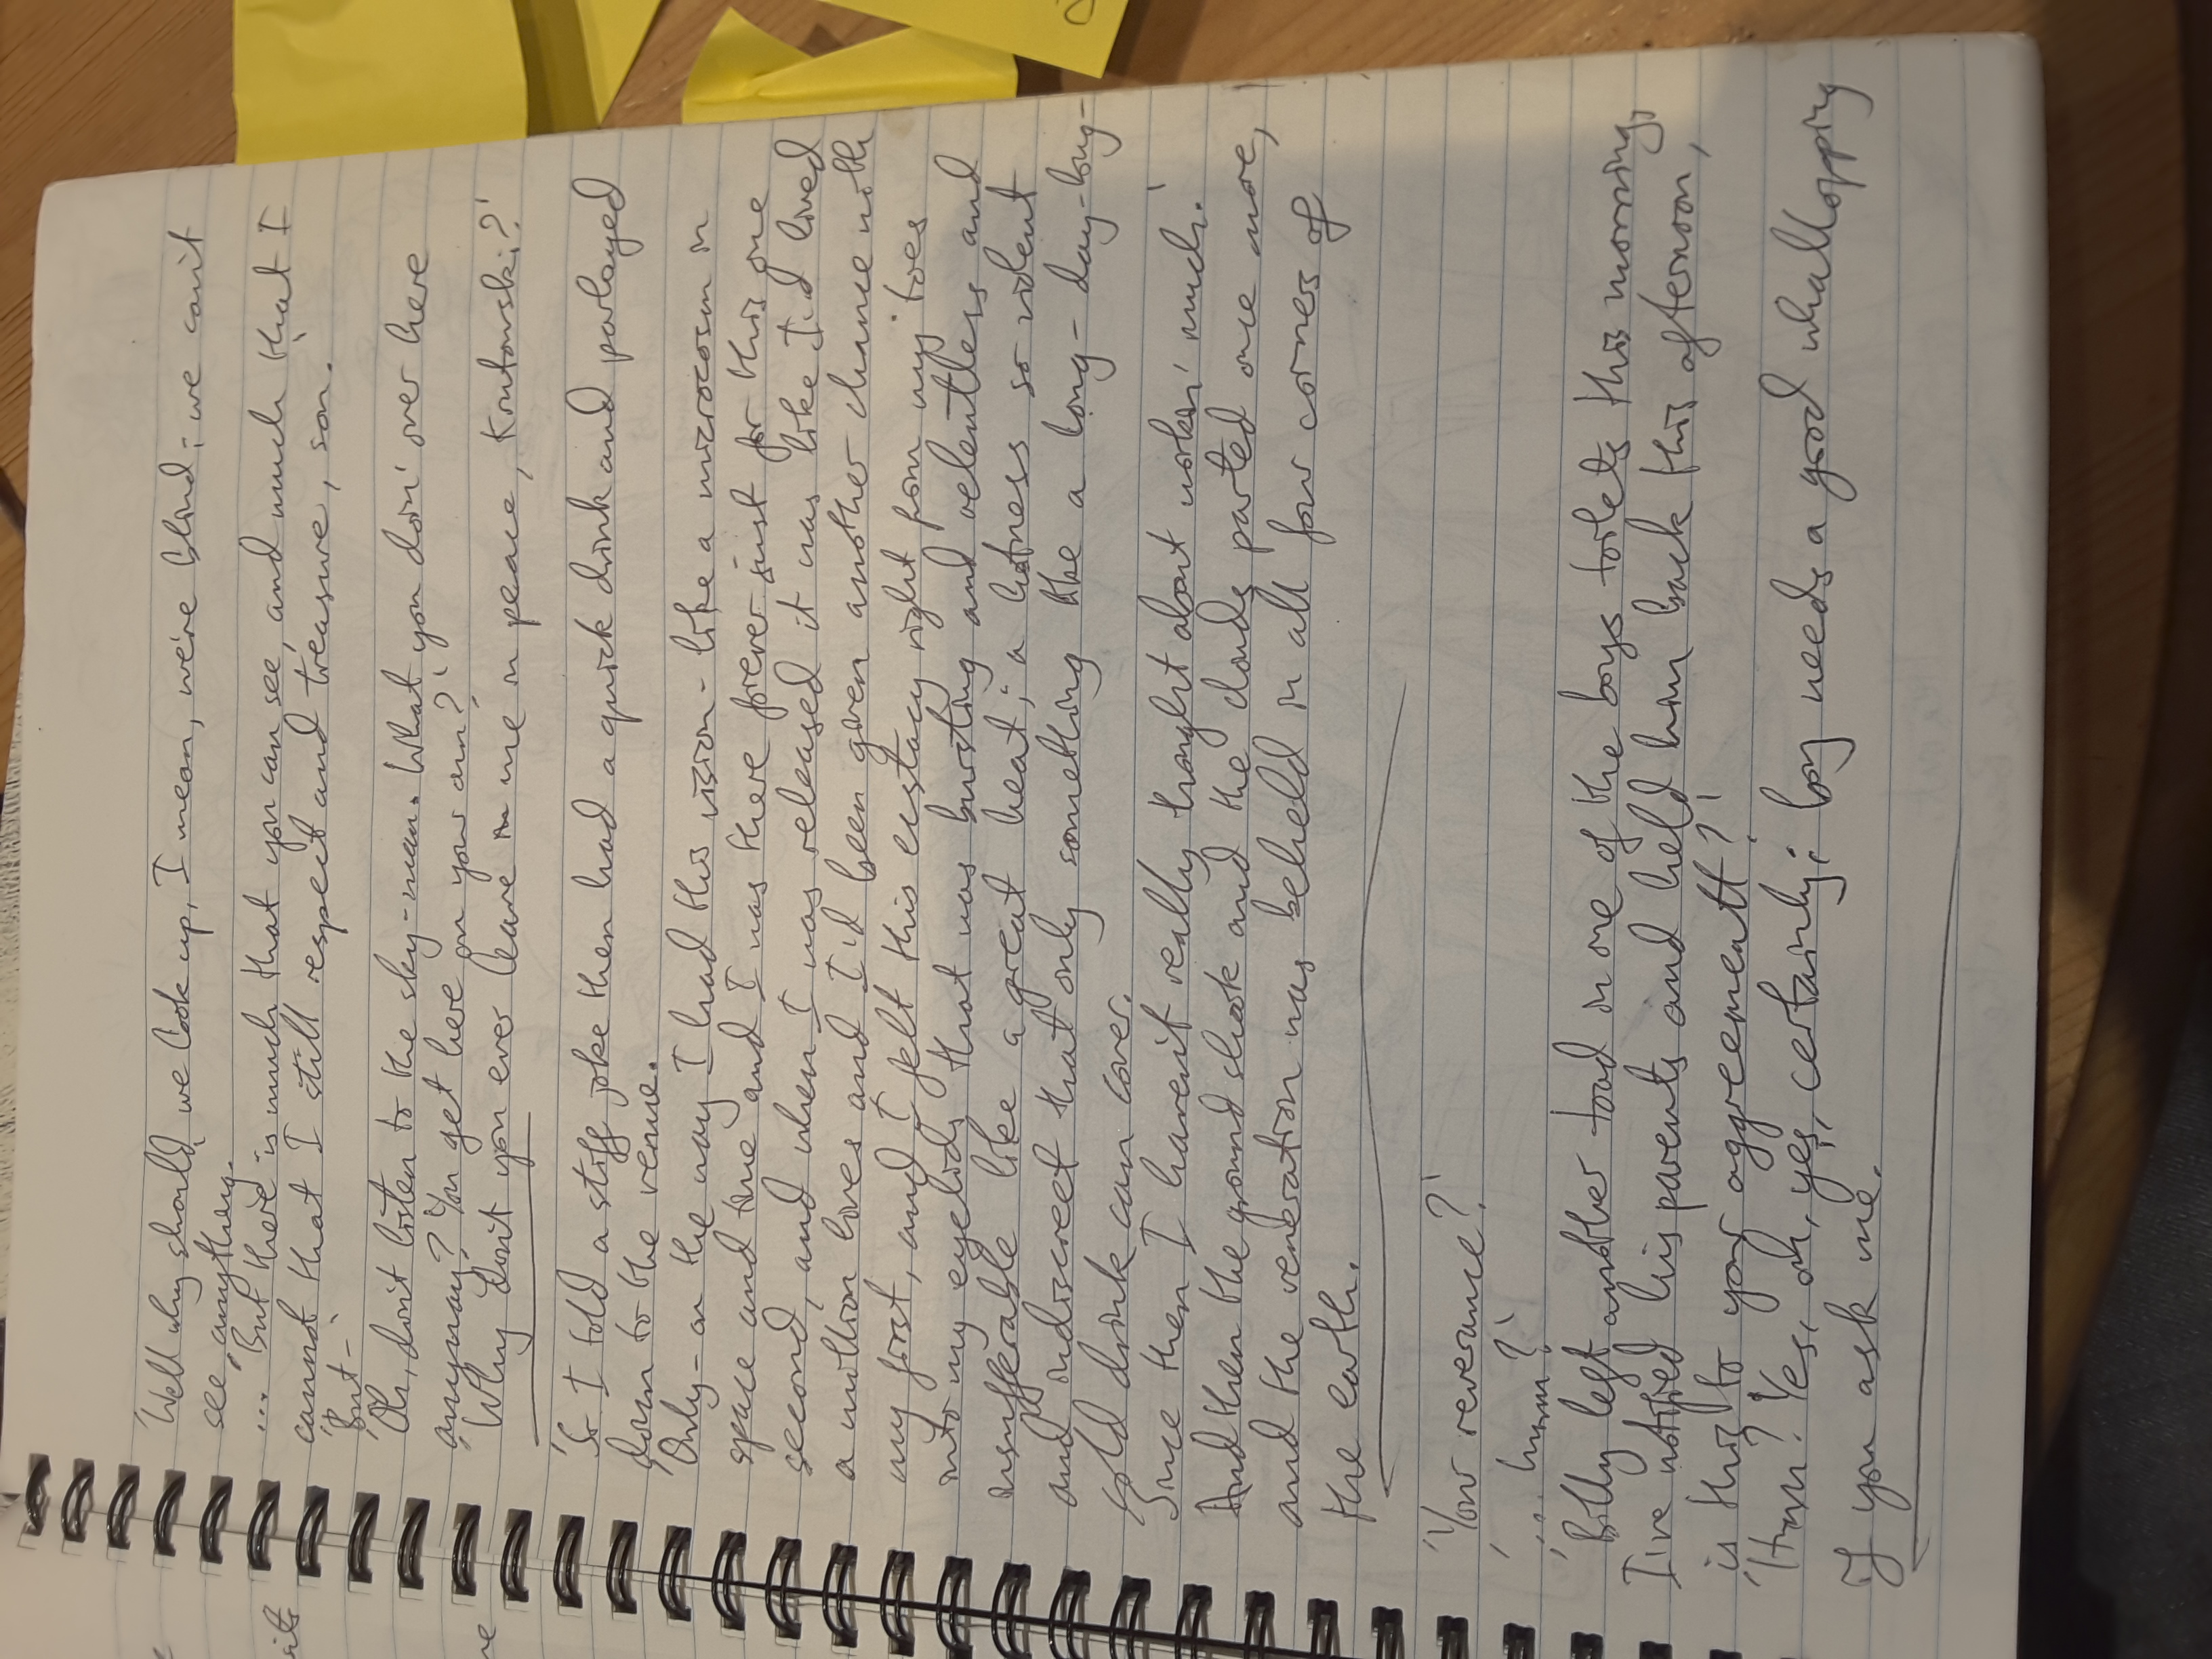 'Well why should we look up, I mean, we're blind; we can't
see anything.'
... 'But there is much that you can see, and much that I
cannot that I still respect and treasure, son.'
'But-'
'Oh, don't listen to the sky-man. What you doin' over here
anyway? You get here on your own?'
'Why don't you ever leave me in peace, Krutowski?'
'So I told a stiff joke then had a quick drink and parlayed
down to the venue.
'Only - on the way I had this vision - like a microcosm in
space and time and I was there forever just for this one
second, and when I was released it was like I'd lived
a million lives and I'd been given another chance with
my first, and I felt this ecstacy right from my toes
into my eyelids that was bursting and relentless and
insufferable like a great heat; a hotness so violent
and indiscreet that only something like a long-day-long-
cold drink can cover.
Since then I haven't really thought about workin' much.'
And then the ground shook and the clouds parted once more,
and the veneration was beheld in all four corners of
the earth.
'Your reverance?'
'... hmm?'
'Billy left another toad in one of the boys toilets this morning,
I've notified his parents and held him back this afternoon,
is this to your aggreementt?'
'Hmm? Yes, oh, yes, certainly; boy needs a good whallopping
if you ask me.
sits